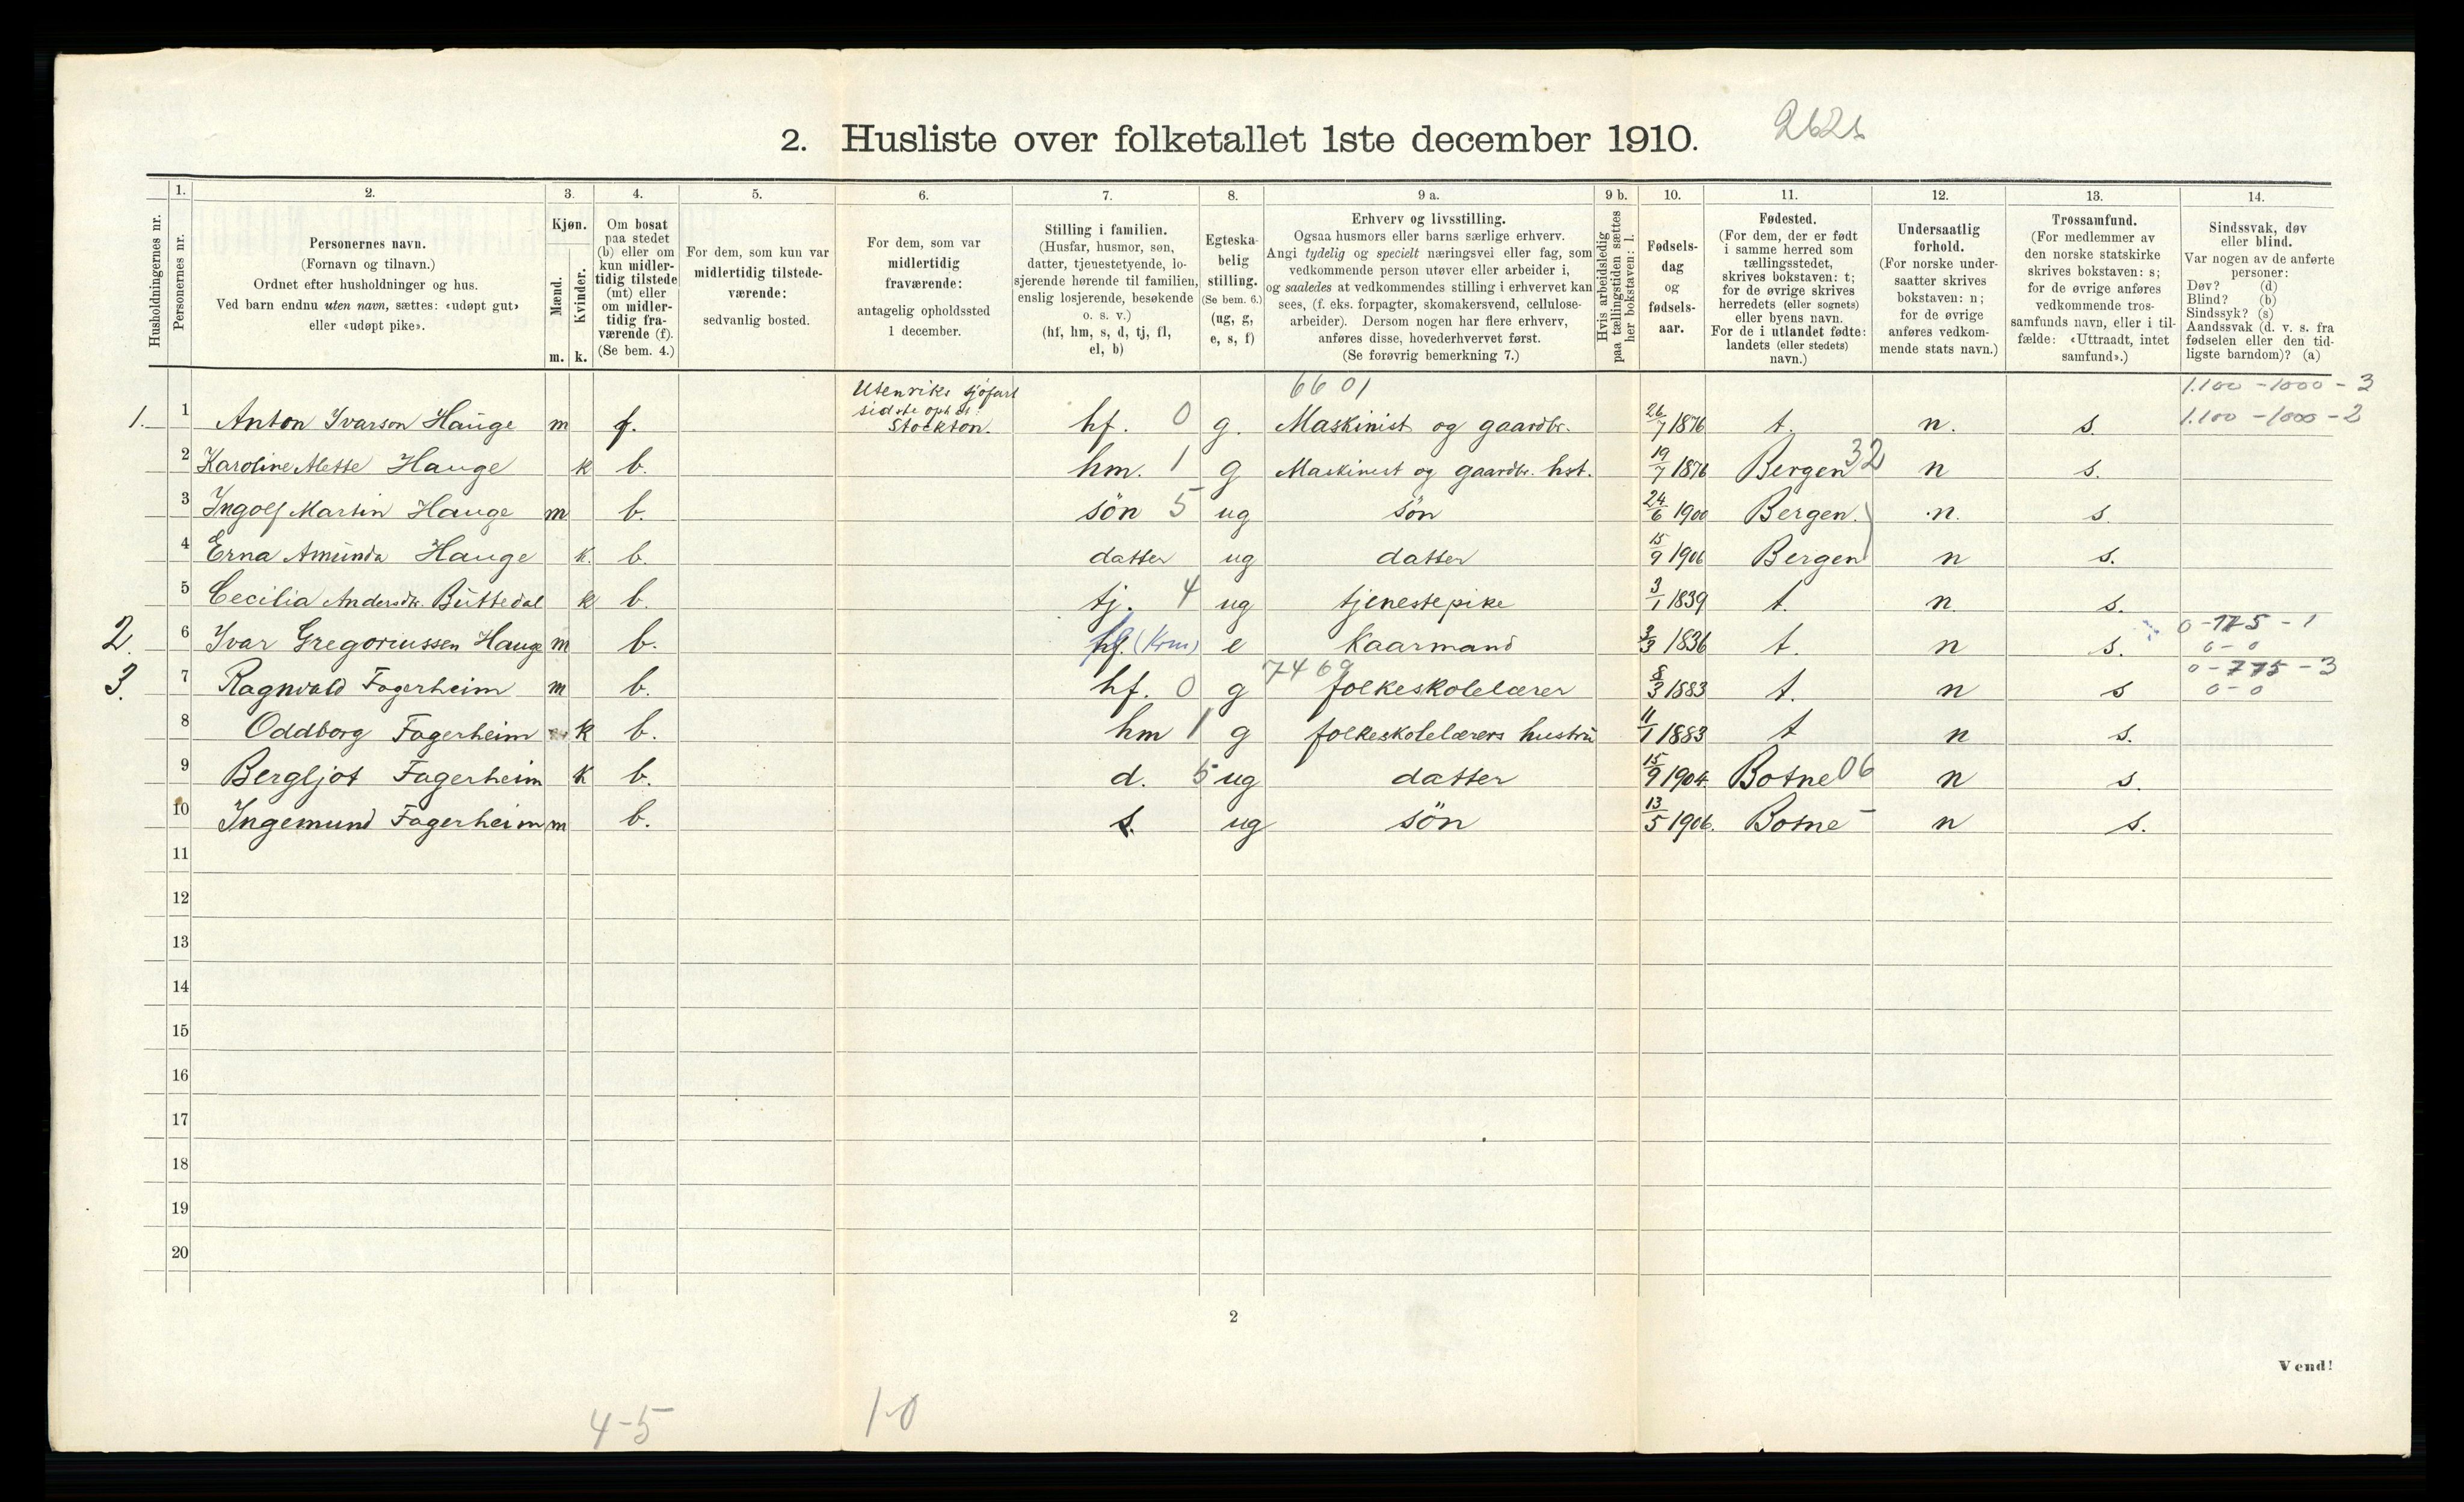 2. Husliste over folketallet 1ste december 1910.
Husholdningernes nr.
1.
Personernes nr.
2.
Personernes navn.
(Fornavn og tilnavn.)
Ordnet efter husholdninger og hus.
Ved barn endnu uten navn, sættes: «udøpt gut»
eller «udøpt pike».
3.
Kjøn.
Mænd.
Kvinder.
m. k.
4.
Om bosat
paa stedet
(b) eller om
kun midler-
tidig tilstede
(mt) eller
om midler-
tidig fra-
værende (f).
(Se bem. 4.)
5.
For dem, som kun var
midlertidig tilstede-
værende:
sedvanlig bosted.
6.
For dem, som var
midlertidig
fraværende:
antagelig opholdssted
1 december.
7.
Stilling i familien.
(Husfar, husmor, søn,
datter, tjenestetyende, lo-
sjerende hørende til familien,
enslig losjerende, besøkende
o. s. v.)
(hf, hm, s, d, tj, fl,
el, b)
8.
Egteska-
belig
stilling.
(Se bem. 6.)
(ug, g,
e, s, f)
9 a.
Erhverv og livsstilling.
Ogsaa husmors eller barns særlige erhverv.
Angi tydelig og specielt næringsvei eller fag, som
vedkommende person utøver eller arbeider i,
og saaledes at vedkommendes stilling i erhvervet kan
sees, (f. eks. forpagter, skomakersvend, cellulose-
arbeider). Dersom nogen har flere erhverv,
anføres disse, hovederhvervet først.
(Se forøvrig bemerkning 7.)
9 b.
Hvis arbeidsledig
paa tællingstiden sættes
her bokstaven: l.
10.
Fødsels-
dag
og
fødsels-
aar.
11.
Fødested.
(For dem, der er født
i samme herred som
tællingsstedet,
skrives bokstaven: t;
for de øvrige skrives
herredets (eller sognets)
eller byens navn.
For de i utlandet fødte:
landets (eller stedets)
navn.)
12.
Undersaatlig
forhold.
(For norske under-
saatter skrives
bokstaven: n;
for de øvrige
anføres vedkom-
mende stats navn.)
13.
Trossamfund.
(For medlemmer av
den norske statskirke
skrives bokstaven: s;
for de øvrige anføres
vedkommende tros-
samfunds navn, eller i til-
fælde: «Uttraadt, intet
samfund».)
14.
Sindssvak, døv
eller blind.
Var nogen av de anførte
personer:
Døv? (d)
Blind? (b)
Sindssyk? (s)
Aandssvak (d. v. s. fra
fødselen eller den tid-
ligste barndom)? (a)
Utenriks sjøfart 6601 1.100 - 1000 - 3
1. 1 Anton Ivarson Hauge m f. Stockton. hf. 0 g. Maskinist og gaardbr. 26/7 1876 t. n. s. 1.100 - 1000 - 2
2 Karoline Mette Hauge k b. hm. 1 g Maskinist og gaardbr. hst. 19/7 1876 Bergen 32 n s.
3 Ingolf Martin Hauge m b. søn 5 ug søn 24/6 1900 Bergen. n. s.
4 Erna Amunda Hauge k. b. datter ug datter 15/9 1906 Bergen n s.
5 Cecilia Andersdtr. Buttedal k b. tj. 4 ug tjenestepike 3/1 1839 t. n. s.
0 - 175 - 1
2. 6 Ivar Gregoriussen Hauge m b. hf. (Krm) e Kaarmand 3/3 1836 t. n s. 0 - 0
7469 0 - 775 - 3
3. 7 Ragnvald Fagerheim m b. hf. 0 g folkeskolelærer 8/3 1883 t. n s 0 - 0
8 Oddborg Fagerheim k b. hm 1 g folkeskolelærers hustru 11/1 1883 t n s.
9 Bergljot Fagerheim k b. d. 5 ug datter 15/9 1904. Botne 06 n s.
10 Ingemund Fagerheim m b. s. ug søn 13/5 1906. Botne - n s.
11
12
13
14
15
16
17
18
19
20
2
Vend!
4-5 1-0